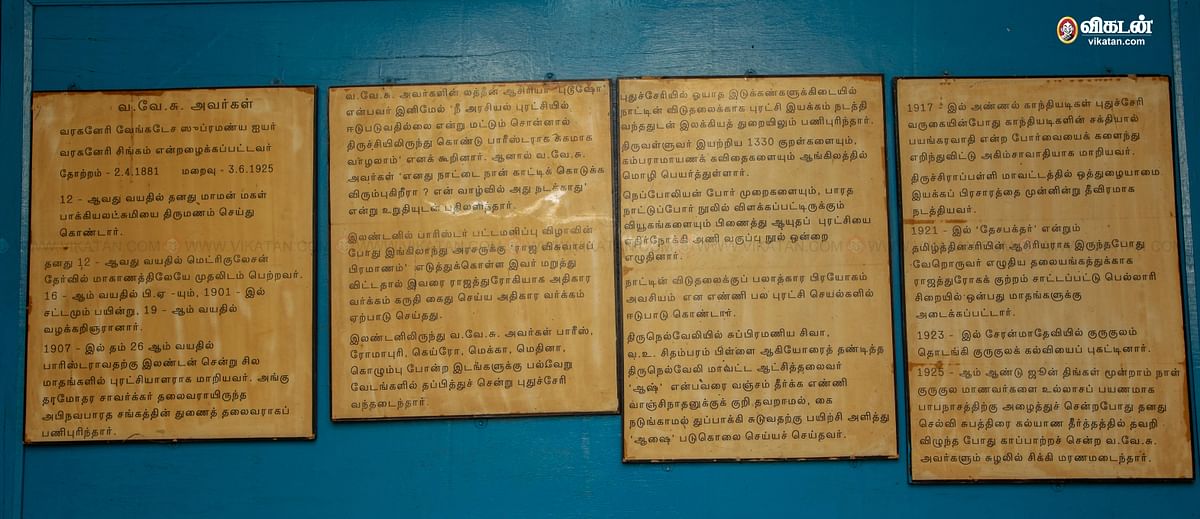 வ.வே.சு. அவர்கள்
வரகனேரி வேங்கடேச ஸுப்ரமண்ய ஐயர்
வரகனேரி சிங்கம் என்றழைக்கப்பட்டவர்
தோற்றம் - 2.4.1881 மறைவு - 3.6.1925
12 - ஆவது வயதில் தனது மாமன் மகள்
பாக்கியலட்சுமியை திருமணம் செய்து
கொண்டார்.
தனது 12 - ஆவது வயதில் மெட்ரிகுலேசன்
தேர்வில் மாகாணத்திலேயே முதலிடம் பெற்றவர்.
16 - ஆம் வயதில் பி.ஏ -யும், 1901 - இல்
சட்டமும் பயின்று, 19 - ஆம் வயதில்
வழக்கறிஞரானார்.
1907 - இல் தம் 26 ஆம் வயதில்
பாரிஸ்டராவதற்கு இலண்டன் சென்று சில
மாதங்களில் புரட்சியாளராக மாறியவர். அங்கு
தாமோதர சாவர்க்கர் தலைவராயிருந்த
அபிநவபாரத சங்கத்தின் துணைத் தலைவராகப்
பணிபுரிந்தார்.
வ.வே.சு. அவர்களின் லத்தீன் ஆசிரியர்
என்பவர் இனிமேல் 'நீ அரசியல் புரட்சியில்
ஈடுபடுவதில்லை என்று மட்டும் சொன்னால்
திருச்சியிலிருந்து கொண்டு பாரீஸ்டராக சுகமாக
வாழலாம்' எனக் கூறினார். ஆனால் வ.வே.சு.
அவர்கள் 'எனது நாட்டை நான் காட்டிக் கொடுக்க
விரும்புகிறீரா ? என் வாழ்வில் அது நடக்காது'
என்று உறுதியுடன் பதிலளித்தார்.
இலண்டனில் பாரிஸ்டர் பட்டமளிப்பு விழாவின்
போது இங்கிலாந்து அரசருக்கு 'ராஜ விசுவாசப்
பிரமாணம்' எடுத்துக்கொள்ள இவர் மறுத்து
விட்டதால் இவரை ராஜத்துரோகியாக அதிகார
வர்க்கம் கருதி கைது செய்ய அதிகார வர்க்கம்
ஏற்பாடு செய்தது.
இலண்டனிலிருந்து வ.வே.சு. அவர்கள் பாரீஸ்,
ரோமாபுரி, கெய்ரோ, மெக்கா, மெதினா,
கொழும்பு போன்ற இடங்களுக்கு பல்வேறு
வேடங்களில் தப்பித்துச் சென்று புதுச்சேரி
வந்தடைந்தார்.
புதுச்சேரியில் ஓயாத இடுக்கண்களுக்கிடையில்
நாட்டின் விடுதலைக்காக புரட்சி இயக்கம் நடத்தி
வந்ததுடன் இலக்கியத் துறையிலும் பணிபுரிந்தார்.
திருவள்ளுவர் இயற்றிய 1330 குறள்களையும்,
கம்பராமாயணக் கவிதைகளையும் ஆங்கிலத்தில்
மொழி பெயர்த்துள்ளார்.
நெப்போலியன் போர் முறைகளையும், பாரத
நாட்டுப்போர் நூலில் விளக்கப்பட்டிருக்கும்
வியூகங்களையும் பிணைத்து ஆயுதப் புரட்சியை
எதிர்நோக்கி அணி வகுப்பு நூல் ஒன்றை
எழுதினார்.
நாட்டின் விடுதலைக்குப் பலாத்கார பிரயோகம்
அவசியம் என எண்ணி பல புரட்சி செயல்களில்
ஈடுபாடு கொண்டார்.
திருநெல்வேலியில் சுப்பிரமணிய சிவா,
வ.உ. சிதம்பரம் பிள்ளை ஆகியோரைத் தண்டித்த
திருநெல்வேலி மாவட்ட ஆட்சித்தலைவர்
'ஆஷ்' என்பவரை வஞ்சம் தீர்க்க எண்ணி
வாஞ்சிநாதனுக்குக் குறி தவறாமல், கை
நடுங்காமல் துப்பாக்கி சுடுவதற்கு பயிற்சி அளித்து
'ஆஷை' படுகொலை செய்யச் செய்தவர்.
1917 - இல் அண்ணல் காந்தியடிகள் புதுச்சேரி
வருகையின்போது காந்தியடிகளின் சக்தியால்
பயங்கரவாதி என்ற போர்வையைக் களைந்து
எறிந்துவிட்டு அகிம்சாவாதியாக மாறியவர்.
திருச்சிராப்பள்ளி மாவட்டத்தில் ஒத்துழையாமை
இயக்கப் பிரசாரத்தை முன்னின்று தீவிரமாக
நடத்தியவர்.
1921 - இல் 'தேசபக்தர்' என்றும்
தமிழ்த்தினசரியின் ஆசிரியராக இருந்தபோது
வேறொருவர் எழுதிய தலையங்கத்துக்காக
ராஜத்துரோகக் குற்றம் சாட்டப்பட்டு பெல்லாரி
சிறையில் ஒன்பது மாதங்களுக்கு
அடைக்கப்பட்டார்.
1923 - இல் சேரன்மாதேவியில் குருகுலம்
தொடங்கி குருகுலக் கல்வியைப் புகட்டினார்.
1925 - ஆம் ஆண்டு ஜூன் திங்கள் மூன்றாம் நாள்
குருகுல மாணவர்களை உல்லாசப் பயணமாக
பாபநாசத்திற்கு அழைத்துச் சென்றபோது தனது
செல்வி சுபத்திரை கல்யாண தீர்த்தத்தில் தவறி
விழுந்த போது காப்பாற்றச் சென்ற வ.வே.சு.
அவர்களும் சுழலில் சிக்கி மரணமடைந்தார்.
விகடன்
vikatan.com